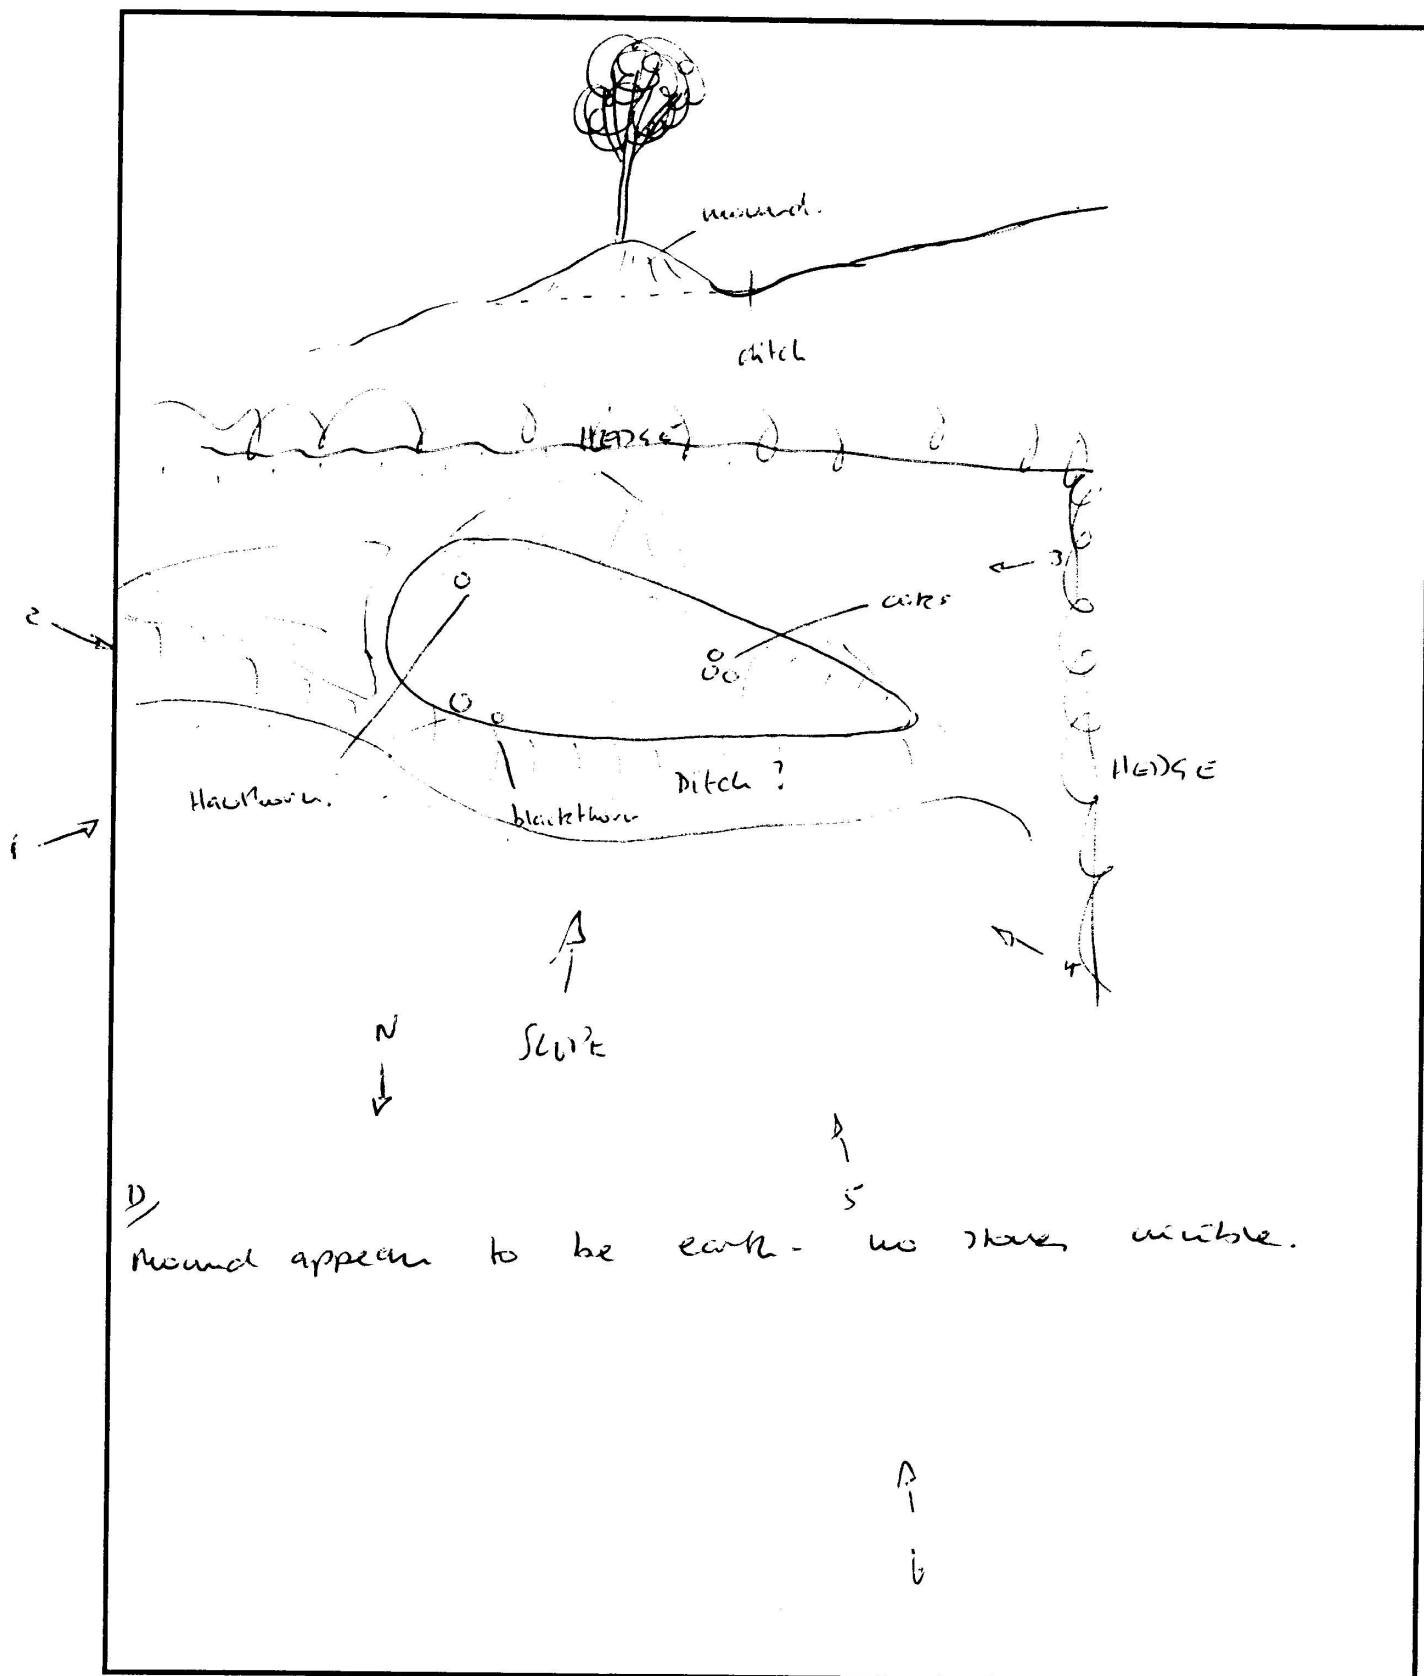 mound.
ditch
HEDGE
3
2
Ditch ?
HEDGE
Hawthorn.
blackthorn
1
4
N
SLOPE
5
D/
Mound appears to be earth - no stones visible.
6